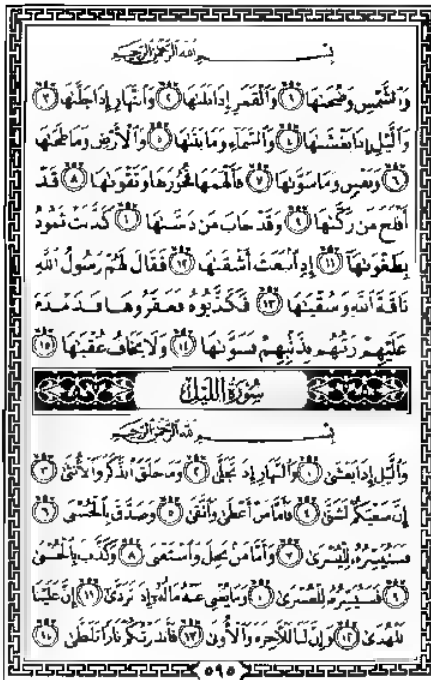 بِسْمِ اللَّهِ الرَّحْمَٰنِ الرَّحِيمِ
وَالشَّمْسِ وَضُحَىٰهَا ١ وَالْقَمَرِ إِذَا تَلَىٰهَا ٢ وَالنَّهَارِ إِذَا جَلَّىٰهَا ٣
وَالَّيْلِ إِذَا يَغْشَىٰهَا ٤ وَالسَّمَاءِ وَمَا بَنَىٰهَا ٥ وَالْأَرْضِ وَمَا طَحَىٰهَا
٦ وَنَفْسٍ وَمَا سَوَّىٰهَا ٧ فَأَلْهَمَهَا فُجُورَهَا وَتَقْوَىٰهَا ٨ قَدْ
أَفْلَحَ مَن زَكَّىٰهَا ٩ وَقَدْ خَابَ مَن دَسَّىٰهَا ١٠ كَذَّبَتْ ثَمُودُ
بِطَغْوَىٰهَا ١١ إِذِ انۢبَعَثَ أَشْقَىٰهَا ١٢ فَقَالَ لَهُمْ رَسُولُ اللَّهِ
نَاقَةَ اللَّهِ وَسُقْيَىٰهَا ١٣ فَكَذَّبُوهُ فَعَقَرُوهَا فَدَمْدَمَ
عَلَيْهِمْ رَبُّهُم بِذَنۢبِهِمْ فَسَوَّىٰهَا ١٤ وَلَا يَخَافُ عُقْبَىٰهَا ١٥
سُورَةُ اللَّيْلِ
بِسْمِ اللَّهِ الرَّحْمَٰنِ الرَّحِيمِ
وَالَّيْلِ إِذَا يَغْشَىٰ ١ وَالنَّهَارِ إِذَا تَجَلَّىٰ ٢ وَمَا خَلَقَ الذَّكَرَ وَالْأُنثَىٰ ٣
إِنَّ سَعْيَكُمْ لَشَتَّىٰ ٤ فَأَمَّا مَنْ أَعْطَىٰ وَاتَّقَىٰ ٥ وَصَدَّقَ بِالْحُسْنَىٰ ٦
فَسَنُيَسِّرُهُ لِلْيُسْرَىٰ ٧ وَأَمَّا مَنۢ بَخِلَ وَاسْتَغْنَىٰ ٨ وَكَذَّبَ بِالْحُسْنَىٰ
٩ فَسَنُيَسِّرُهُ لِلْعُسْرَىٰ ١٠ وَمَا يُغْنِي عَنْهُ مَالُهُ إِذَا تَرَدَّىٰ ١١ إِنَّ عَلَيْنَا
لَلْهُدَىٰ ١٢ وَإِنَّ لَنَا لَلْآخِرَةَ وَالْأُولَىٰ ١٣ فَأَنذَرْتُكُمْ نَارًا تَلَظَّىٰ ١٤
٥٩٥